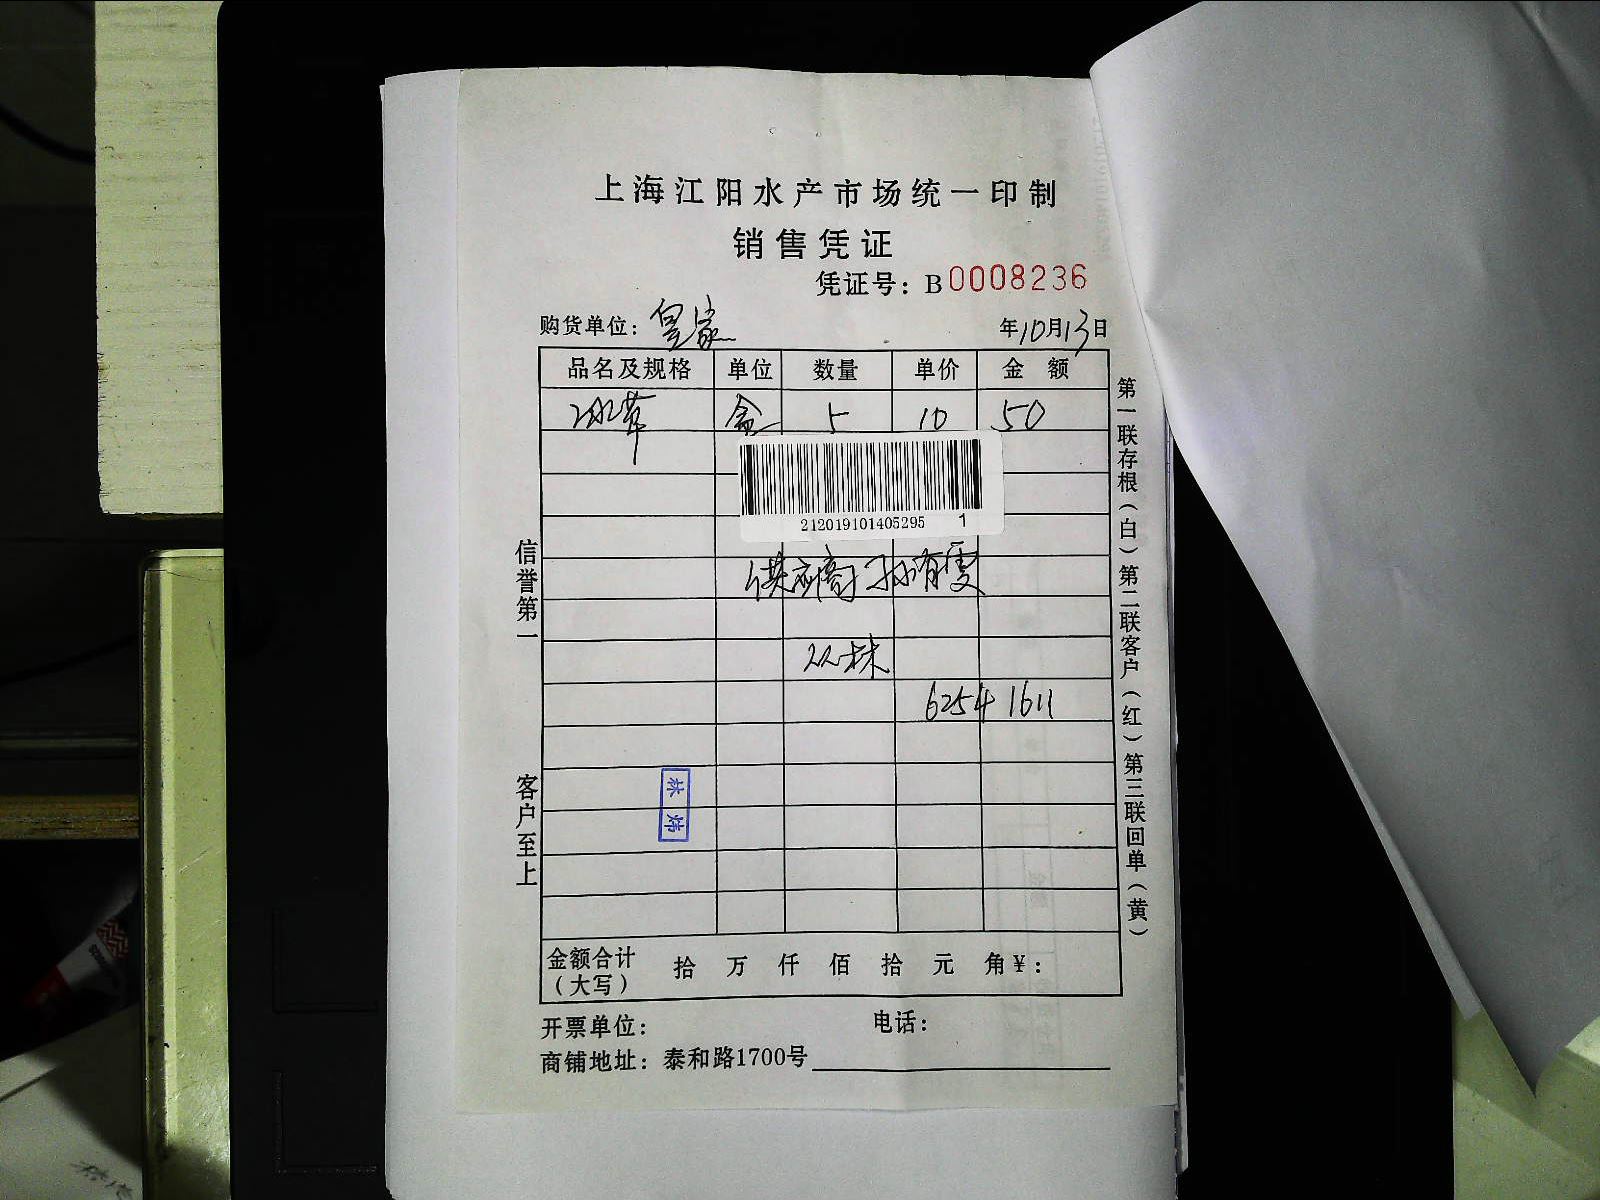 上海江阳水产市场统一印制
销售凭证
凭证号：B0008236
购货单位：皇家 年10月13日
品名及规格 单位 数量 单价 金额
冰草 盒 5 10 50
212019101405295 1
供应商
6254 1611
林炜
金额合计（大写） 拾 万 仟 佰 拾 元 角 ¥：
开票单位： 电话：
商铺地址：泰和路1700号
信誉第一
客户至上
第一联存根（白）第二联客户（红）第三联回单（黄）